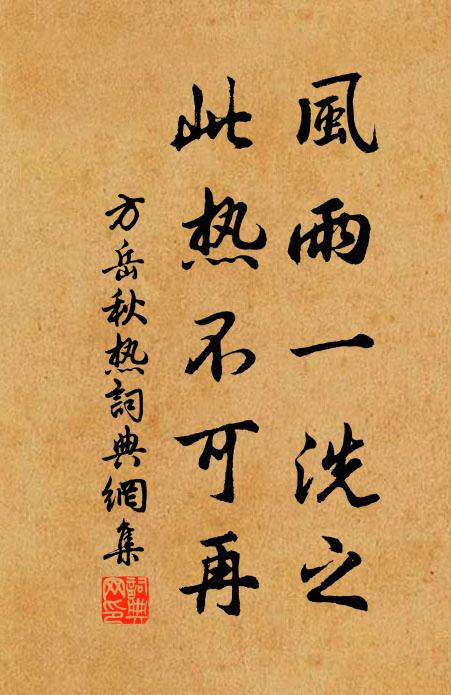 風雨一洗之
此热不可再
方岳秋热詞典網集
詞典
网印